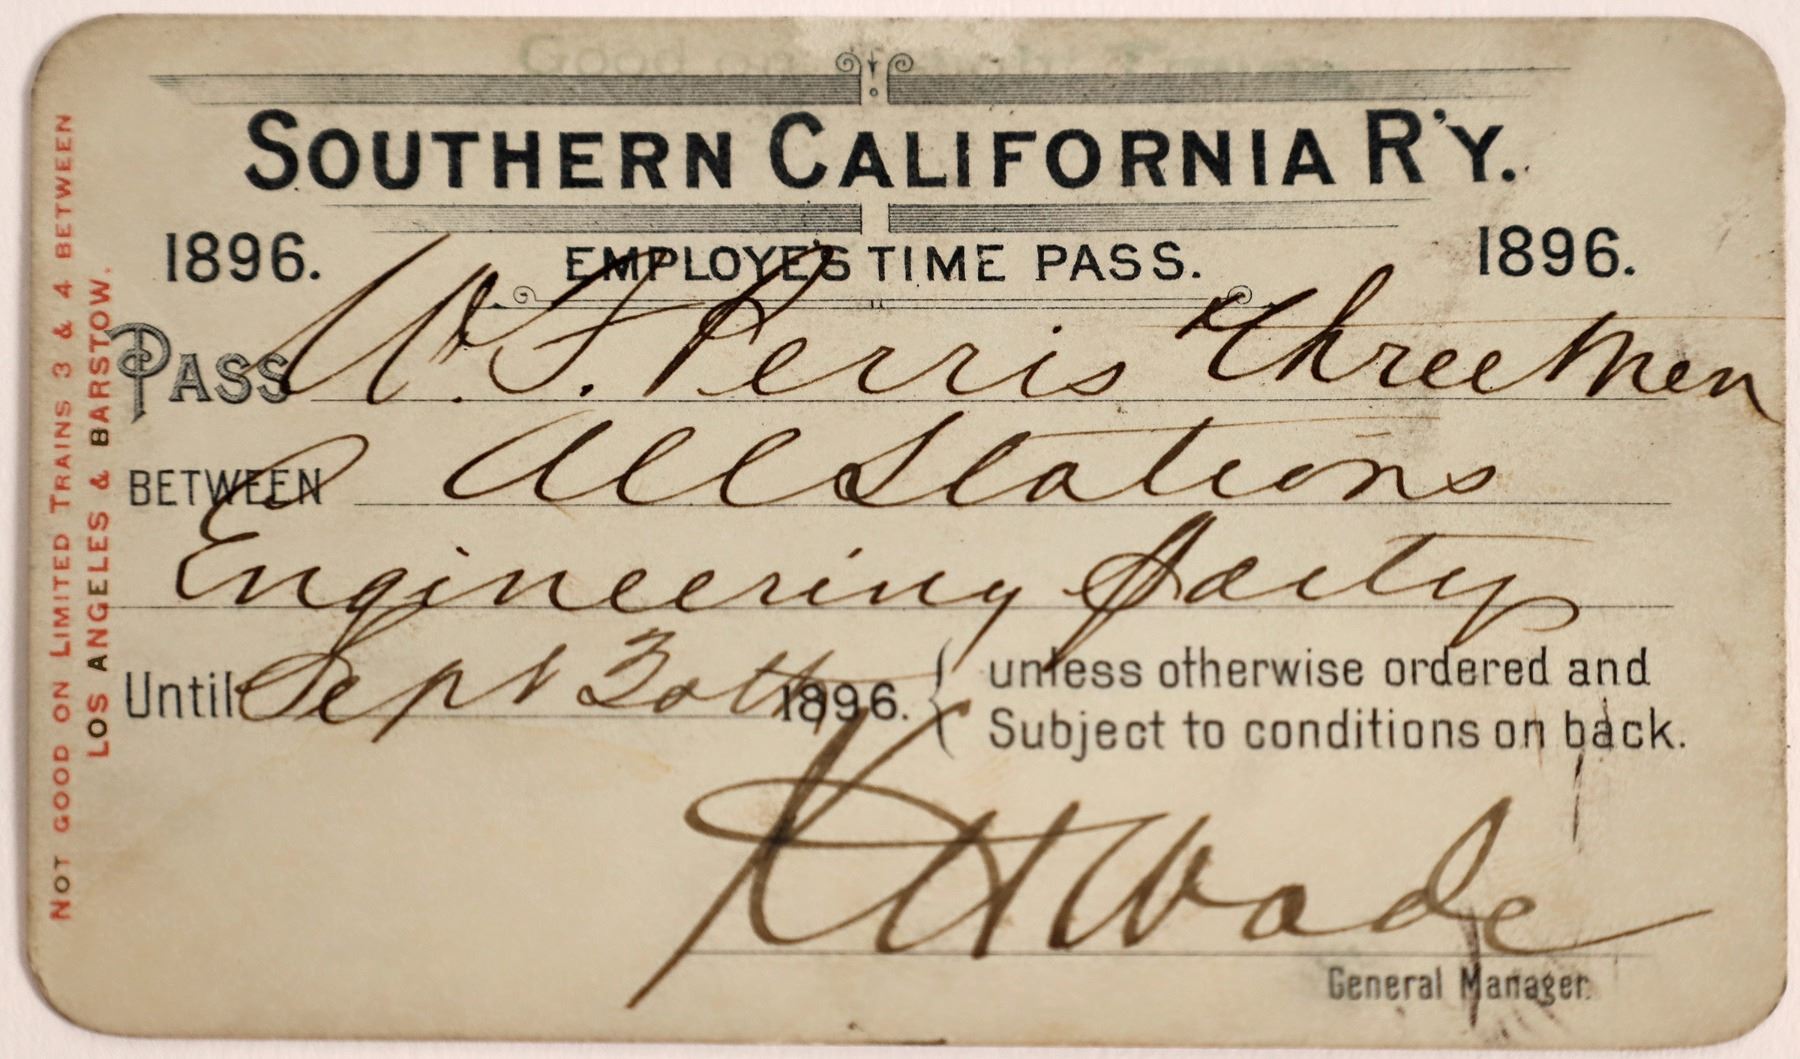 Good on Freight Trains
SOUTHERN CALIFORNIA R'Y.
1896. EMPLOYE'S TIME PASS. 1896.
PASS W. F. Perris & three Men
BETWEEN All Stations
Engineering Party
Until Sept 30th 1896. { unless otherwise ordered and
Subject to conditions on back.
K H Wade
General Manager.
NOT GOOD ON LIMITED TRAINS 3 & 4 BETWEEN
LOS ANGELES & BARSTOW.